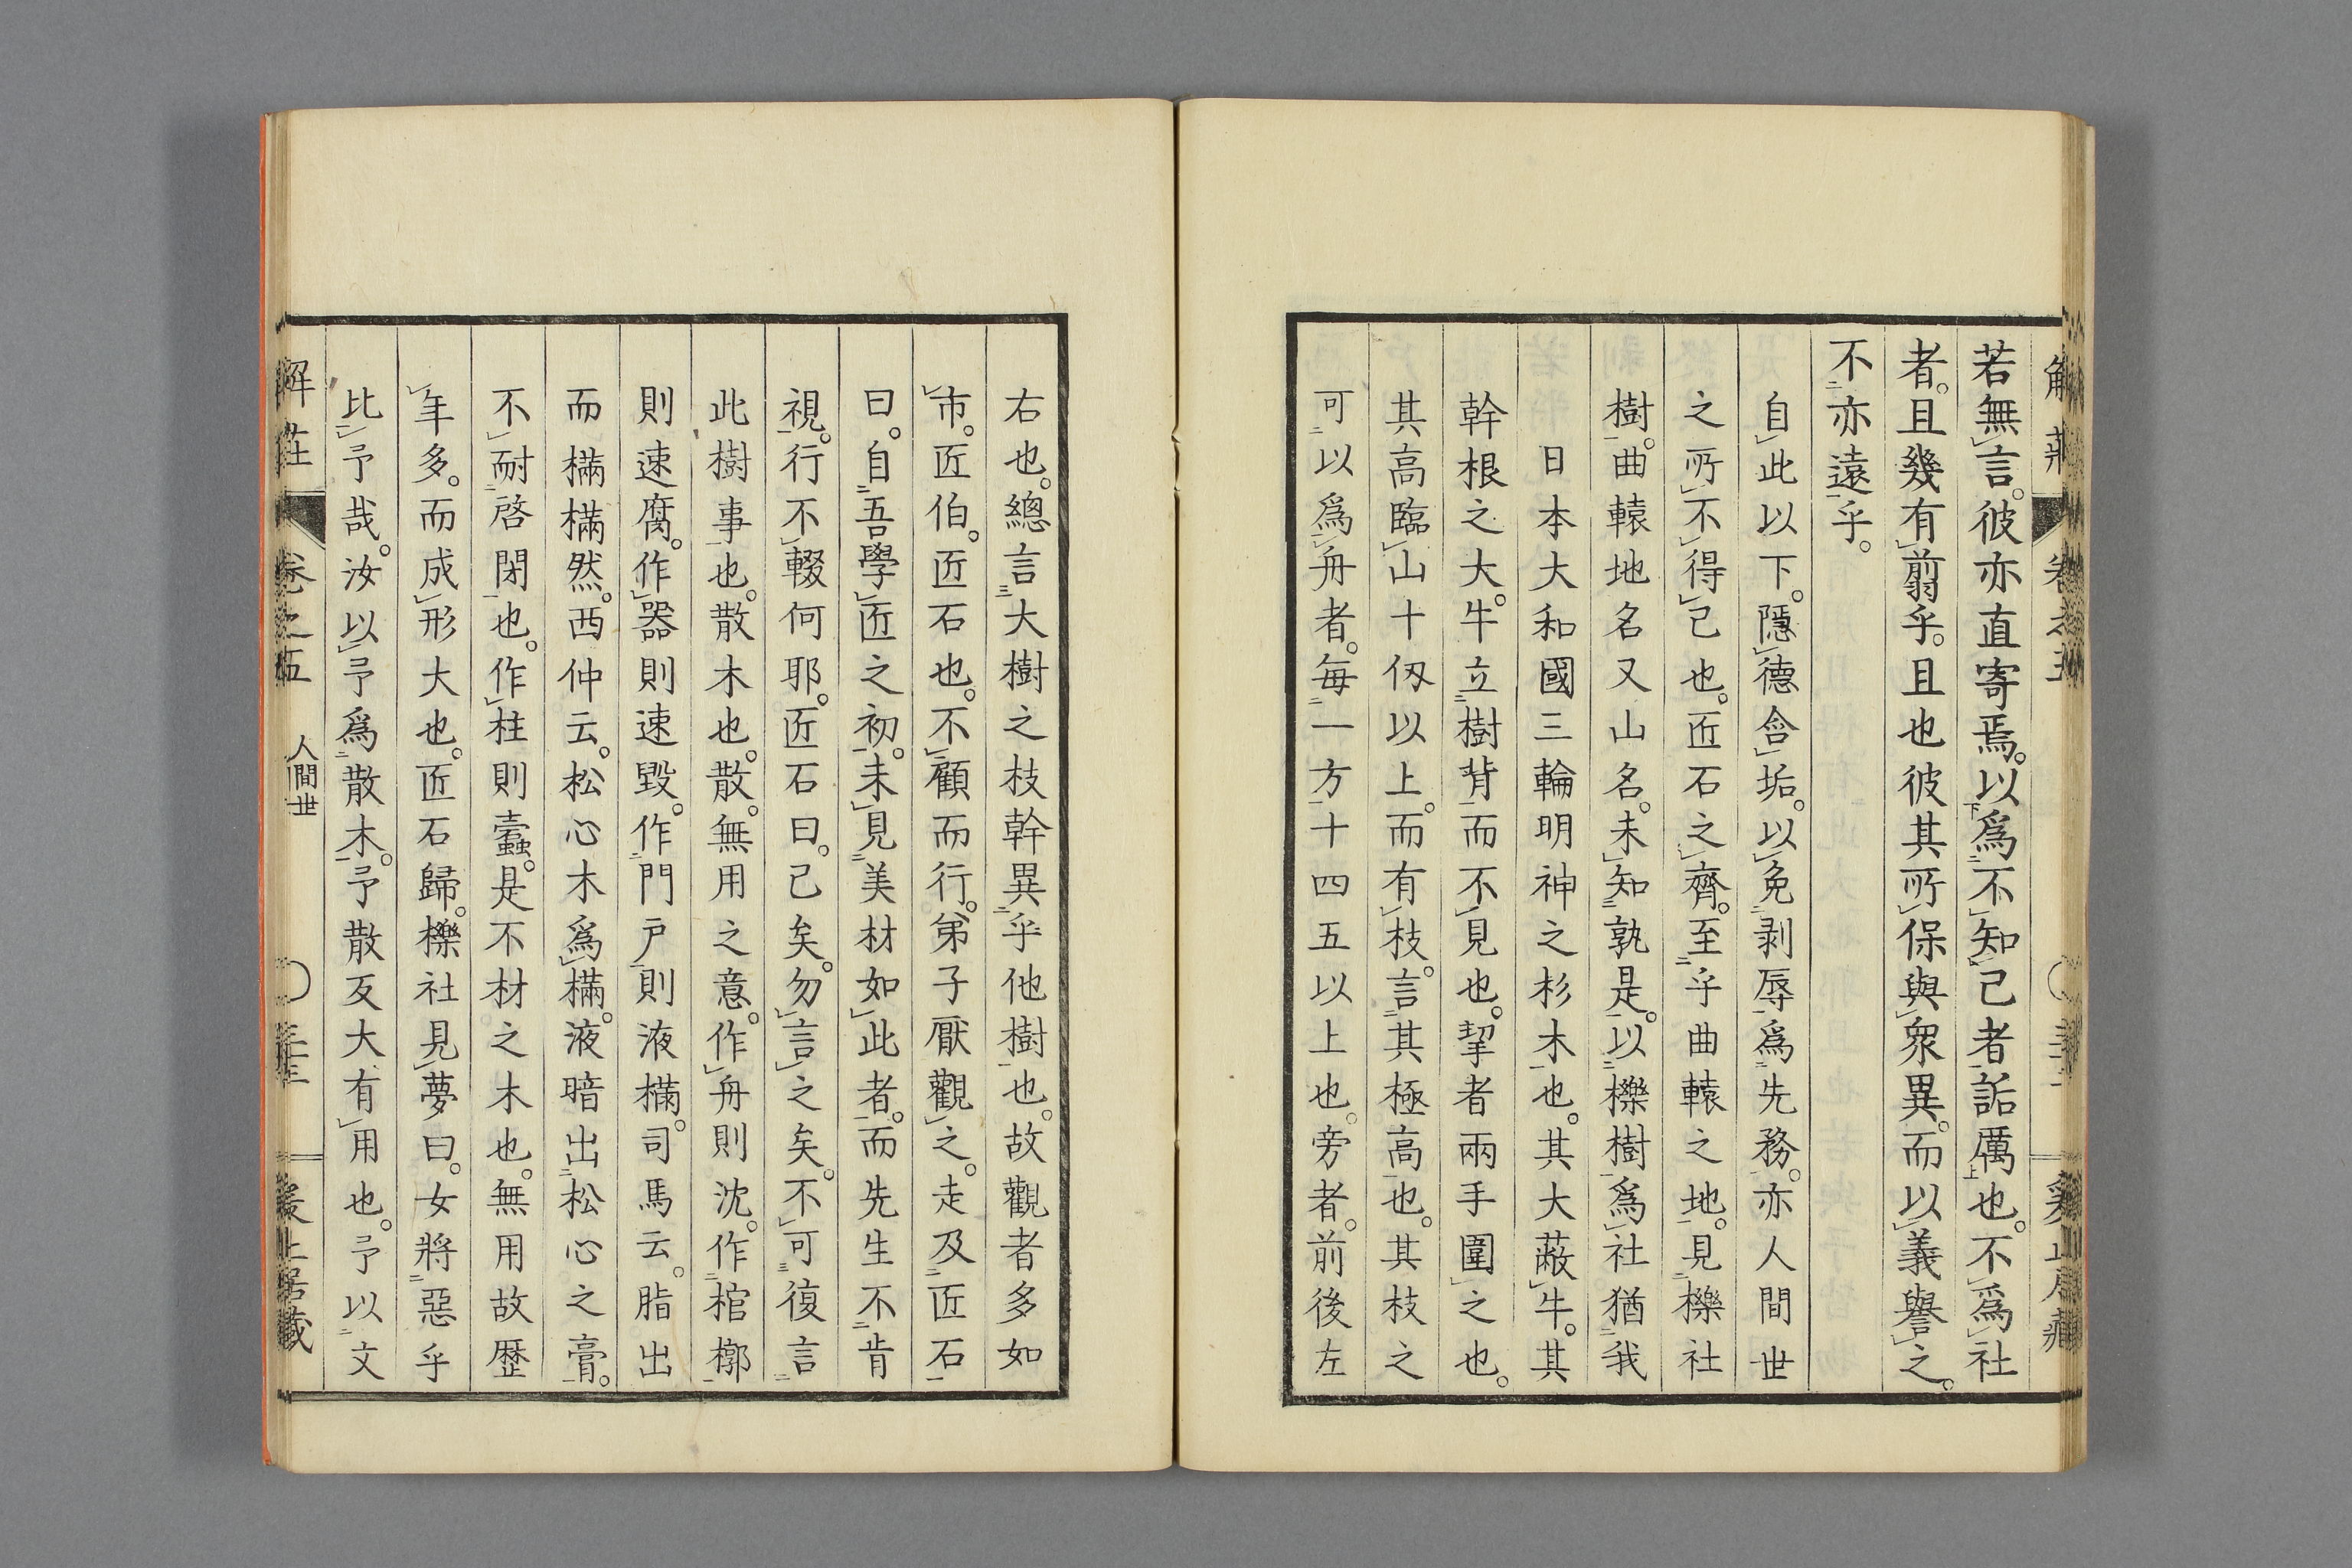 若無言。彼亦直寄焉。以爲不知己者詬厲也。不爲社
者。且幾有翦乎。且也彼其所保與衆異。而以義譽之。
不亦遠乎。
自此以下。隱德含垢。以免剥辱爲先務。亦人間世
之所不得已也。匠石之齊。至乎曲轅之地。見櫟社
樹。曲轅地名又山名。未知孰是。以櫟樹爲社猶我
日本大和國三輪明神之杉木也。其大蔽牛。其
幹根之大。牛立樹背而不見也。挈者兩手圍之也。
其高臨山十仭以上。而有枝。言其極高也。其枝之
可以爲舟者。每一方十四五以上也。旁者。前後左
右也。總言大樹之枝幹異乎他樹也。故觀者多如
市。匠伯。匠石也。不顧而行。弟子厭觀之。走及匠石
曰。自吾學匠之初。未見美材如此者。而先生不肯
視。行不輟何耶。匠石曰。已矣。勿言之矣。不可復言
此樹事也。散木也。散。無用之意。作舟則沈。作棺槨
則速腐。作器則速毀。作門戸則液樠。司馬云。脂出
而樠樠然。西仲云。松心木爲樠。液暗出松心之膏。
不耐啓閉也。作柱則蠹。是不材之木也。無用故歴
年多。而成形大也。匠石歸。櫟社見夢曰。女將惡乎
比予哉。汝以予爲散木。予散反大有用也。予以文
解莊 卷之五 人間世